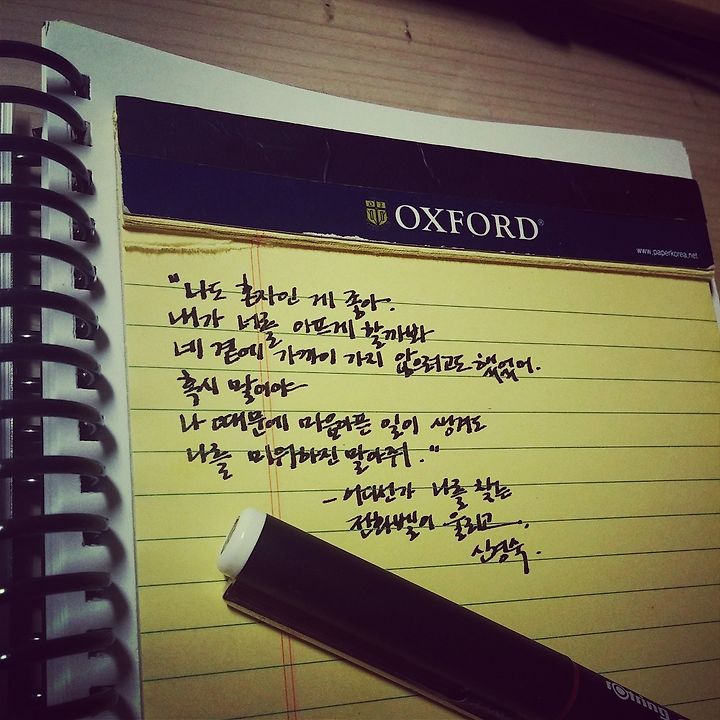 OXFORD
www.paperkorea.net
"나도 혼자인 게 좋아.
내가 너를 아프게 할까봐
네 곁에 가까이 가지 않으려고도 했었어.
혹시 말이야
나 때문에 마음아픈 일이 생겨도
나를 미워하진 말아줘."
- 어디선가 나를 찾는
전화벨이 울리고,
신경숙.
rotring